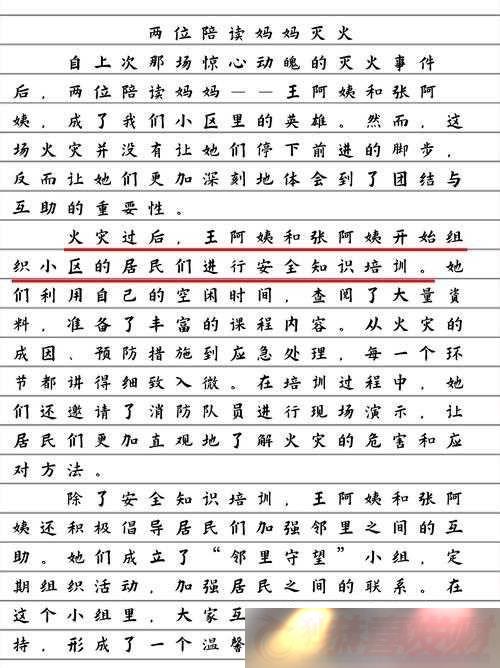 两位陪读妈妈灭火
自上次那场惊心动魄的灭火事件
后，两位陪读妈妈——王阿姨和张阿
姨，成了我们小区里的英雄。然而，这
场火灾并没有让她们停下前进的脚步，
反而让她们更加深刻地体会到了团结与
互助的重要性。
火灾过后，王阿姨和张阿姨开始组
织小区的居民们进行安全知识培训。她
们利用自己的空闲时间，查阅了大量资
料，准备了丰富的课程内容。从火灾的
成因、预防措施到应急处理，每一个环
节都讲得细致入微。在培训过程中，她
们还邀请了消防队员进行现场演示，让
居民们更加直观地了解火灾的危害和应
对方法。
除了安全知识培训，王阿姨和张阿
姨还积极倡导居民们加强邻里之间的互
助。她们成立了“邻里守望”小组，定
期组织活动，加强居民之间的联系。在
这个小组里，大家互
持，形成了一个温馨